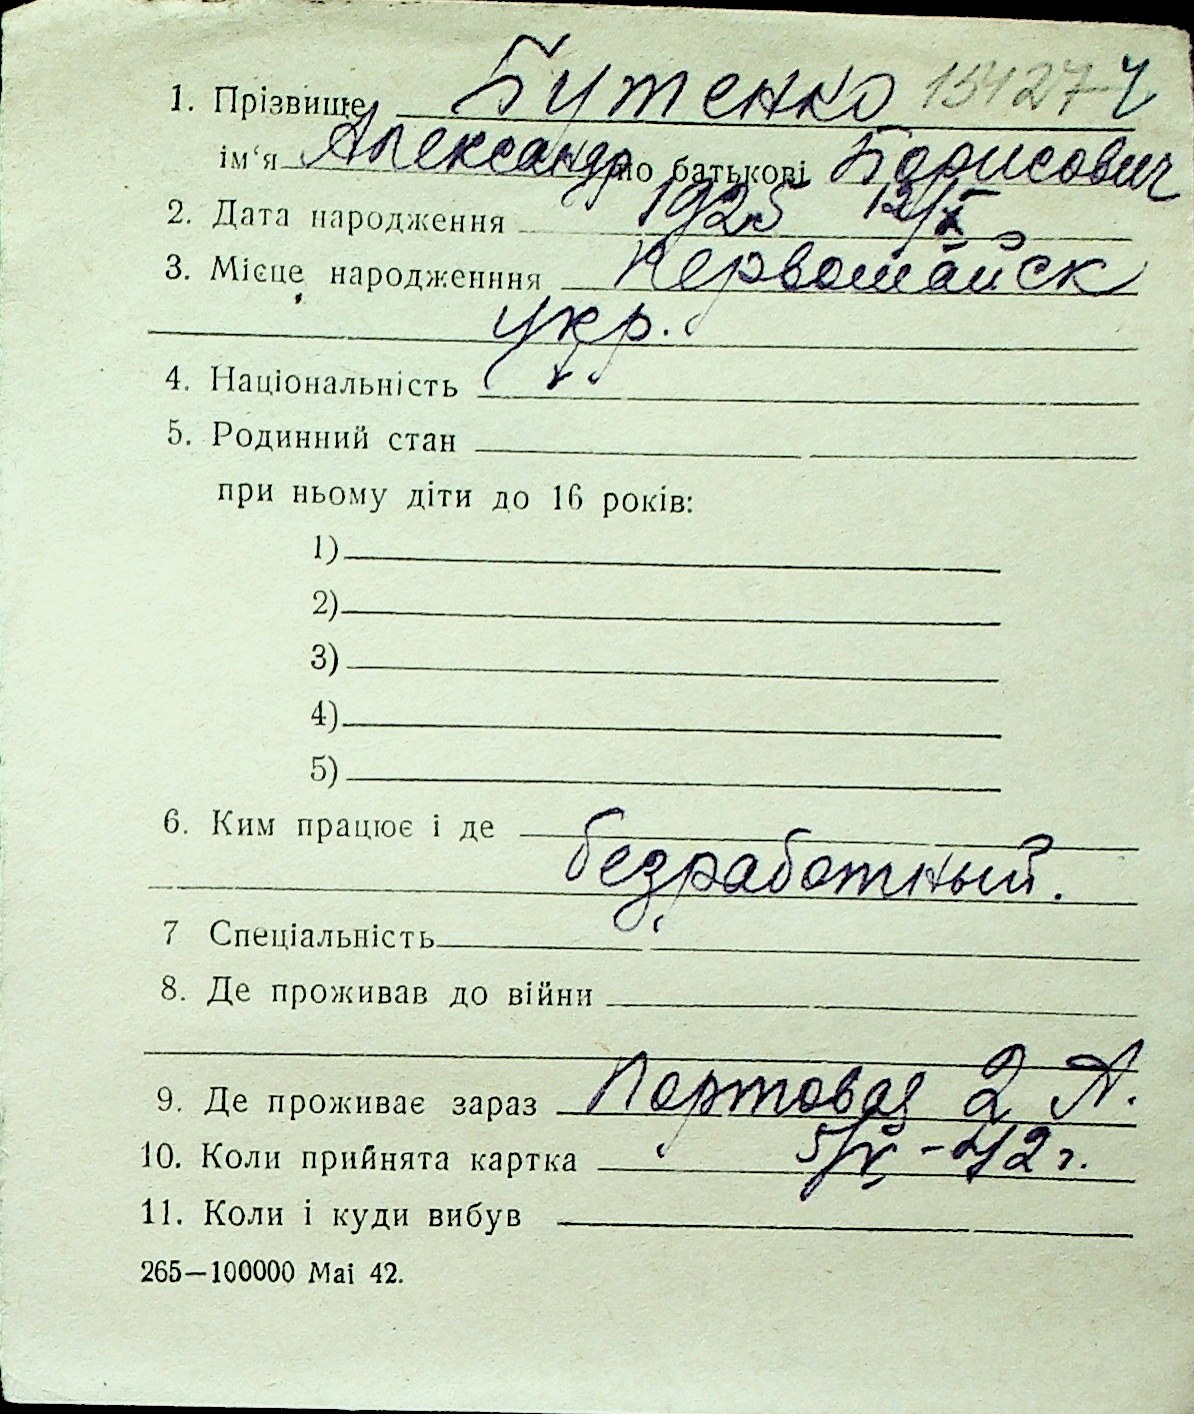 1. Прізвище Бутенко 154274
ім‘я Александр по батькові Борисович
2. Дата народження 1925 12/X
3. Мієце народженння Первомайск
укр.
4. Національність
5. Родинний стан
при ньому діти до 16 років:
1)
2)
3)
4)
5)
6. Ким працює і де
безработный.
7 Спеціальність
8. Де проживав до війни
9. Де проживає зараз Портовая 2 А.
10. Коли прийнята картка 5/V - 42 г.
11. Коли і куди вибув
265—100000 Маі 42.